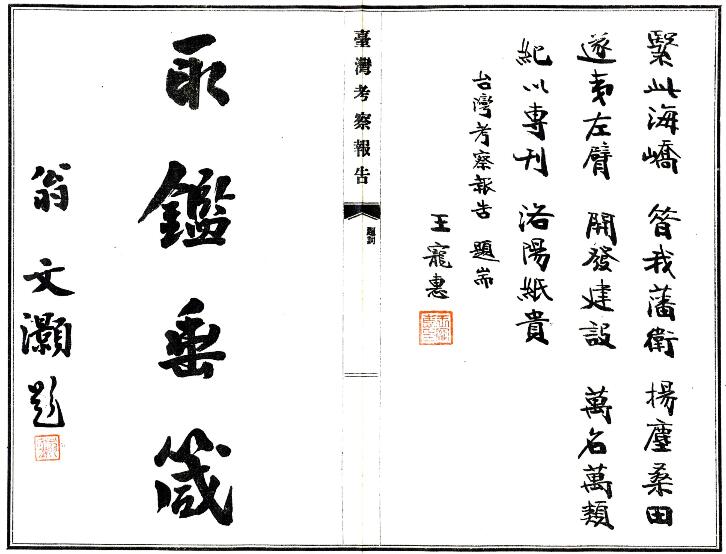 緊此海嶠 昔我藩衛 揚塵桑田
遂夷左臂 開發建設 萬名萬類
紀以專刊 洛陽紙貴
台灣考察報告 題耑
王寵惠
臺灣考察報告
題詞
取鑑垂箴
翁文灝題